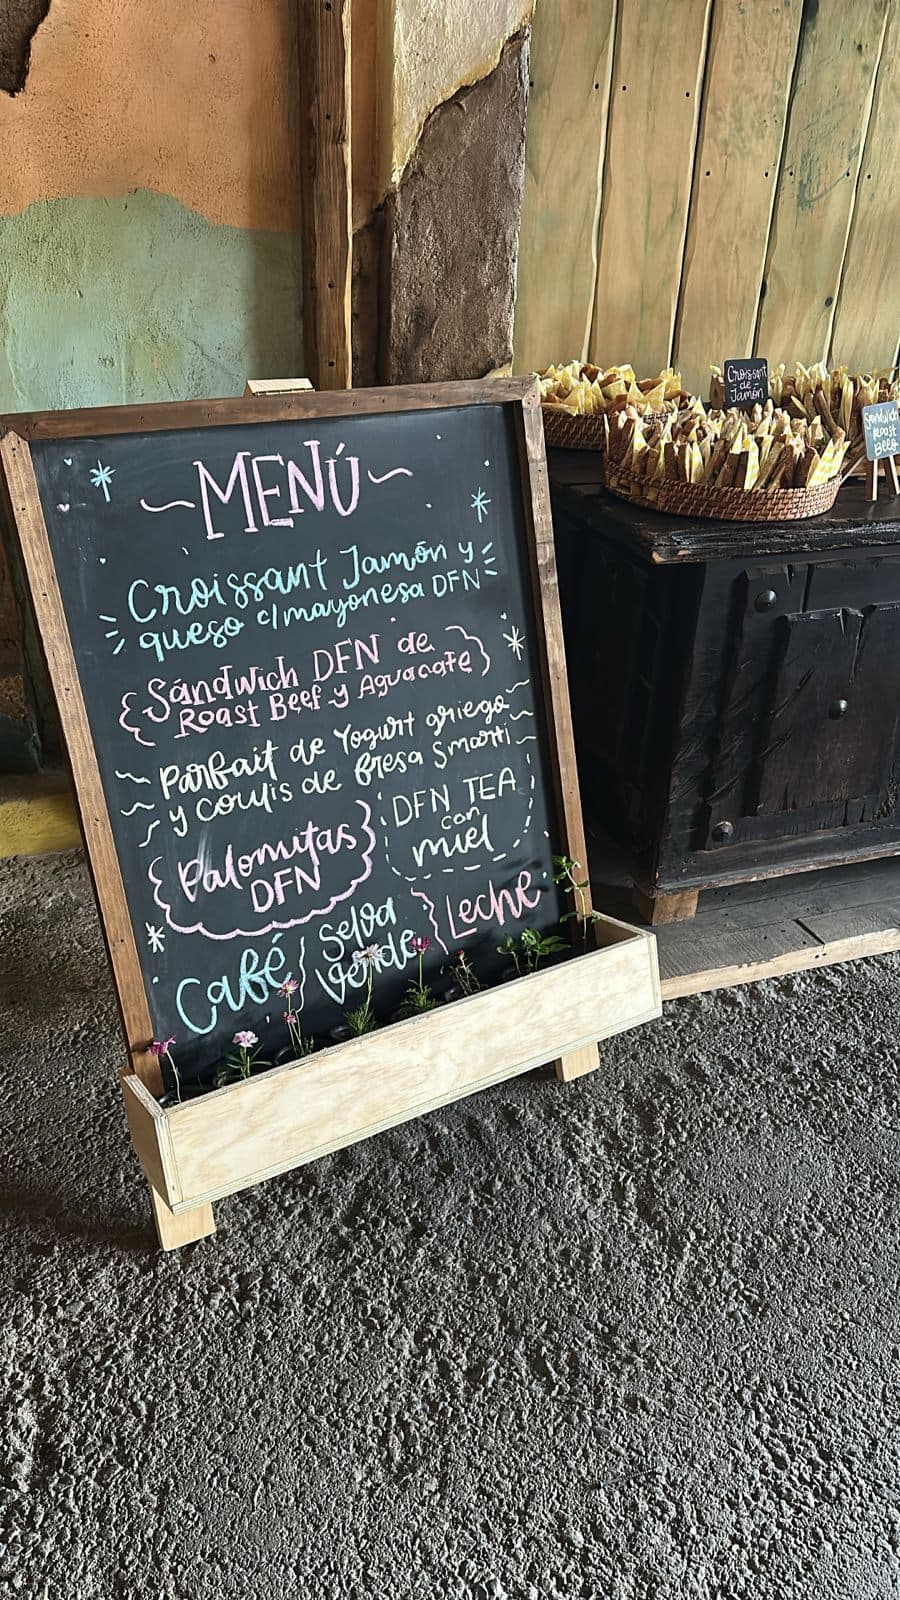 MENÚ
Croissant Jamón y
queso c/mayonesa DFN
Sándwich DFN de
Roast Beef y Aguacate
Parfait de Yogurt griego
y coulis de fresa Smarti
Palomitas
DFN
DFN TEA
con
miel
Café
Selva
Verde
Leche
Croissant
de
Jamón
Sandwich
Roast
Beef